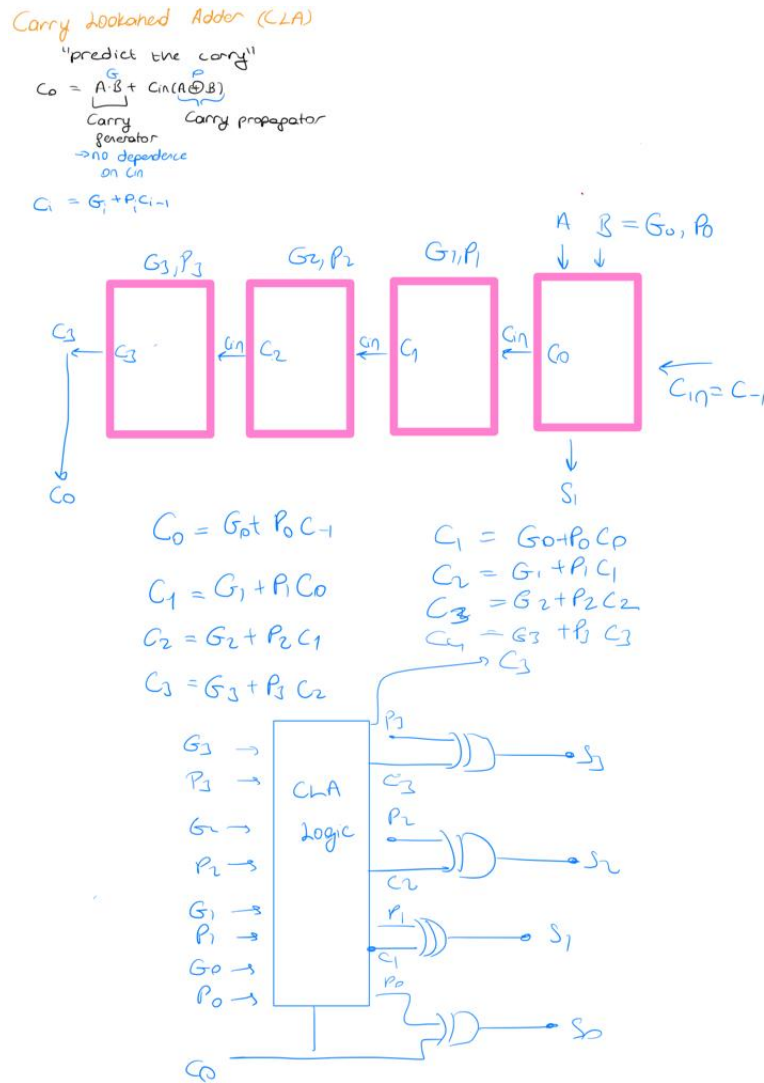 Carry Lookahed Adder (CLA)
"predict the carry"
G P
Co = A·B + Cin(A⊕B)
Carry generator Carry propagator
→ no dependence on Cin
Ci = Gi + Pi Ci-1
A B = G0, P0
G3,P3 G2,P2 G1,P1
C3 C3 Cin C2 Cin C1 Cin C0
Cin = C-1
C0 S1
C0 = G0 + P0 C-1
C1 = G1 + P1 C0
C2 = G2 + P2 C1
C3 = G3 + P3 C2
C1 = G0+P0 C0
C2 = G1 + P1 C1
C3 = G2 + P2 C2
C4 = G3 + P3 C3
C3
G3 →
P3 →
G2 →
P2 →
G1 →
P1 →
G0 →
P0 →
C0
CLA
Logic
P3
C3
S3
P2
C2
S2
P1
C1
S1
P0
S0